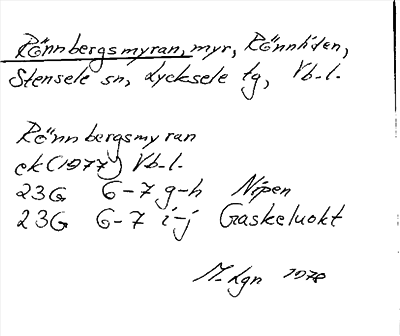 Rönnbergsmyran, myr, Rönnliden,
Stensele sn, Lycksele lg, Vb-l.
Rönnbergsmyran
ek (1977) Vb-l.
23G 6-7 g-h Nipen
23G 6-7 i-j Gaskeluokt
M-Lgn 1978